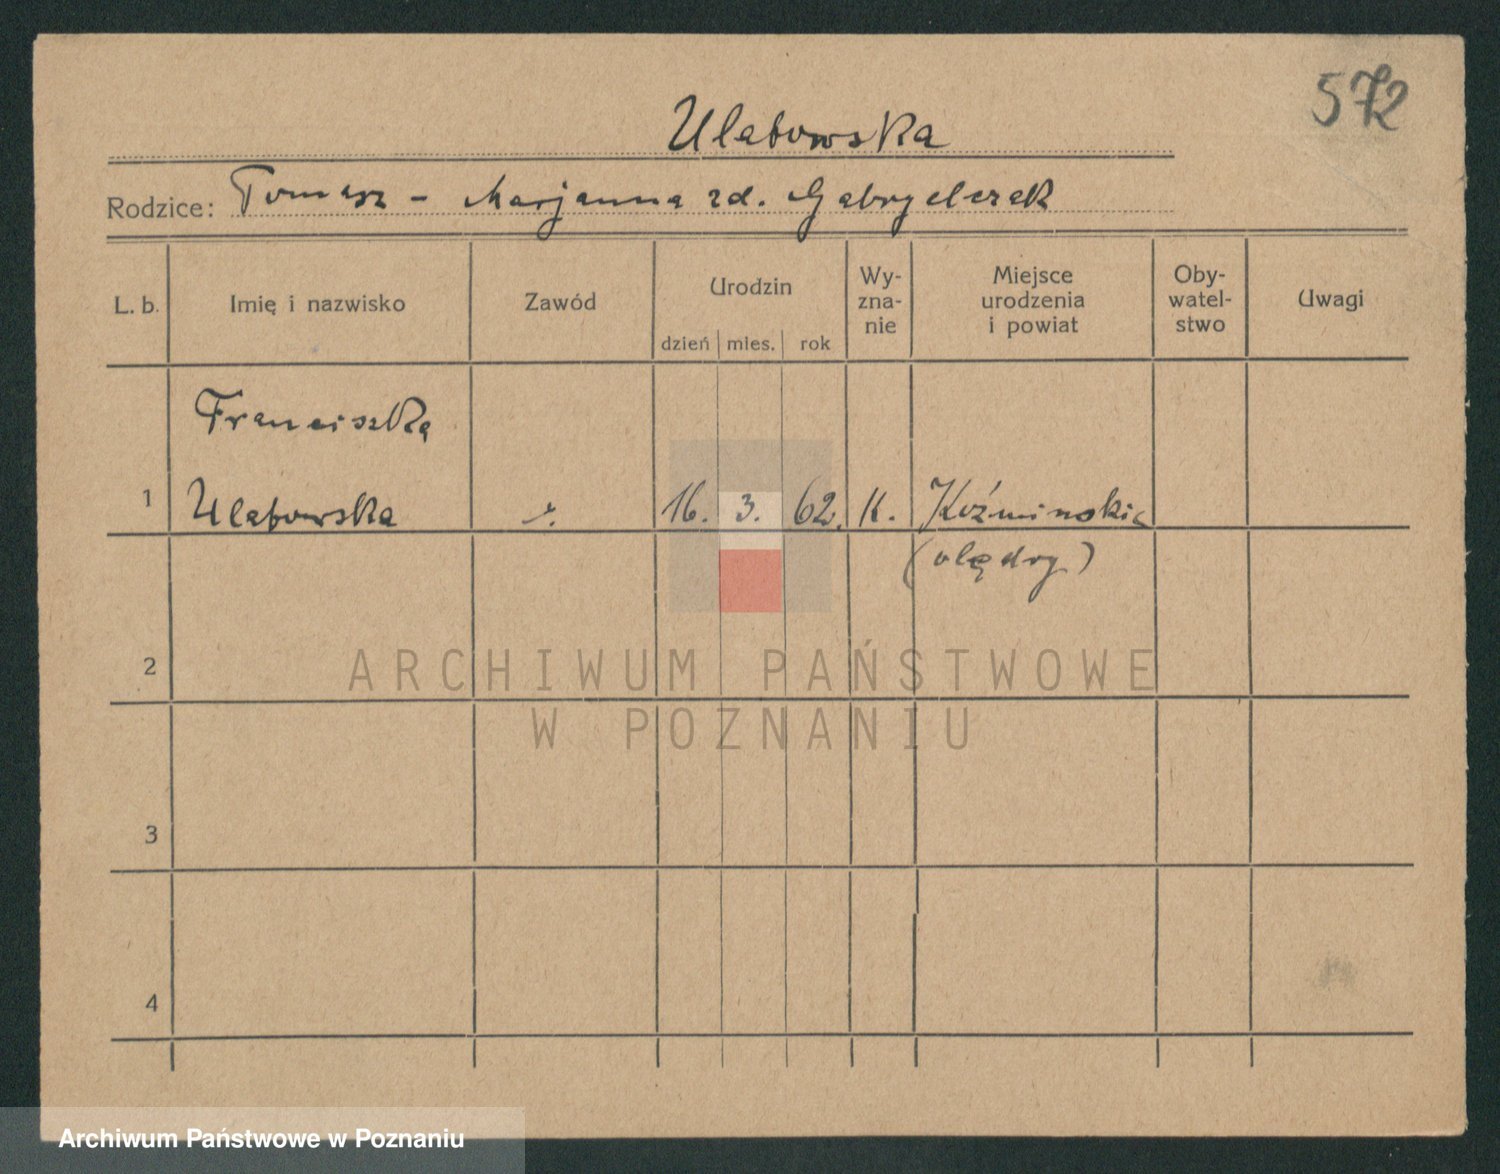 572
Ulabowska
Rodzice: Tomasz - Marjanna zd. Gabryelczak
L. b. Imię i nazwisko Zawód Urodzin dzień mies. rok Wy-zna-nie Miejsce urodzenia i powiat Oby-watel-stwo Uwagi
Franciszka
1 Ulabowska 16. 3. 62. K. Koźminskie
(olędry)
2
ARCHIWUM PAŃSTWOWE
W POZNANIU
3
4
Archiwum Państwowe w Poznaniu